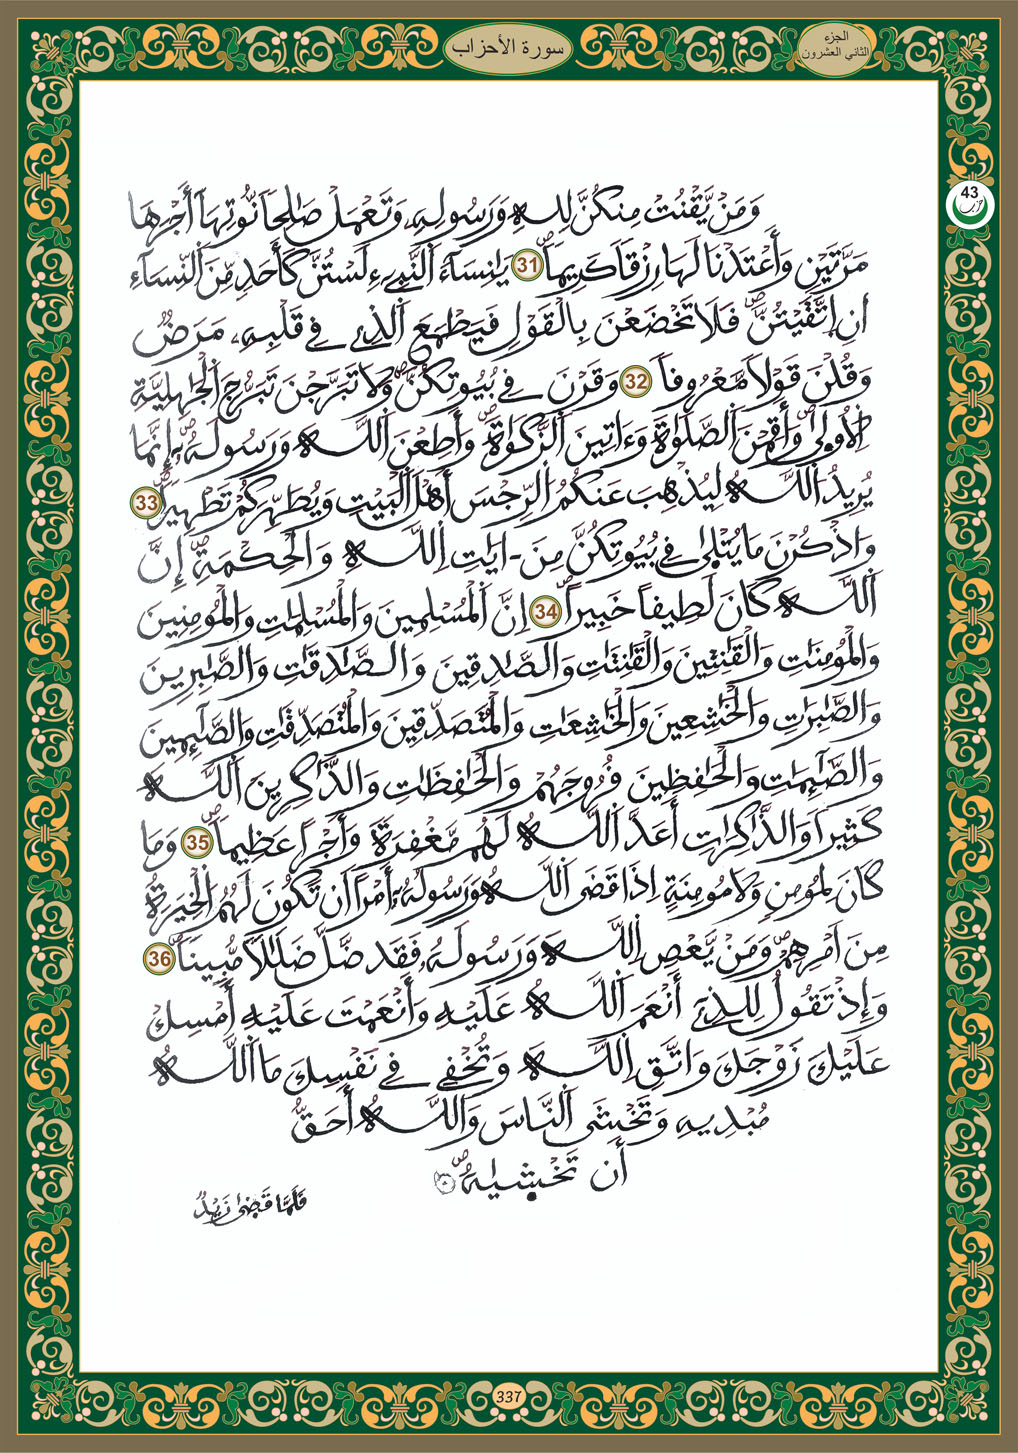 سورة الأحزاب
الجزء
الثاني العشرون
43
حزب
وَمَنْ يَّقْنُتْ مِنكُنَّ لِلهِ وَرَسُولِهِۦ وَتَعْمَلْ صَٰلِحاً نُّوتِهَآ أَجْرَهَا
مَرَّتَيْنِ وَأَعْتَدْنَا لَهَا رِزْقاً كَرِيماًۖ 31 يَٰنِسَآءَ اَ۬لنَّبِےٓءِ لَسْتُنَّ كَأَحَدٖ مِّنَ اَ۬لنِّسَآءِ
اِنِ اِ۪تَّقَيْتُنَّۖ فَلَا تَخْضَعْنَ بِالْقَوْلِ فَيَطْمَعَ اَ۬لذِے فِے قَلْبِهِۦ مَرَضٞ
وَقُلْنَ قَوْلاً مَّعْرُوفاًۖ 32 وَقَرْنَ فِے بُيُوتِكُنَّۖ وَلَا تَبَرَّجْنَ تَبَرُّجَ اَ۬لْجَٰهِلِيَّةِ
اِ۬لُاولَيٰۖ وَأَقِمْنَ اَ۬لصَّلَوٰةَ وَءَاتِينَ اَ۬لزَّكَوٰةَۖ وَأَطِعْنَ اَ۬للَّهَ وَرَسُولَهُۥٓۖ إِنَّمَا
يُرِيدُ اُ۬للَّهُ لِيُذْهِبَ عَنكُمُ اُ۬لرِّجْسَ أَهْلَ اَ۬لْبَيْتِ وَيُطَهِّرَكُمْ تَطْهِيراًۖ 33
وَاذْكُرْنَ مَا يُتْلَيٰ فِے بُيُوتِكُنَّ مِنَ اٰيَٰتِ اِ۬للَّهِ وَالْحِكْمَةِۖ إِنَّ
اَ۬للَّهَ كَانَ لَطِيفاً خَبِيراًۖ 34 اِنَّ اَ۬لْمُسْلِمِينَ وَالْمُسْلِمَٰتِ وَالْمُومِنِينَ
وَالْمُومِنَٰتِ وَالْقَٰنِتِينَ وَالْقَٰنِتَٰتِ وَالصَّٰدِقِينَ وَالصَّٰدِقَٰتِ وَالصَّٰبِرِينَ
وَالصَّٰبِرَٰتِ وَالْخَٰشِعِينَ وَالْخَٰشِعَٰتِ وَالْمُتَصَدِّقِينَ وَالْمُتَصَدِّقَٰتِ وَالصَّٰٓئِمِينَ
وَالصَّٰٓئِمَٰتِ وَالْحَٰفِظِينَ فُرُوجَهُمْ وَالْحَٰفِظَٰتِ وَالذَّٰكِرِينَ اَ۬للَّهَ
كَثِيراً وَالذَّٰكِرَٰتِ أَعَدَّ اَ۬للَّهُ لَهُم مَّغْفِرَةٗ وَأَجْراً عَظِيماًۖ 35 وَمَا
كَانَ لِمُومِنٖ وَلَا مُومِنَةٍ اِذَا قَضَي اَ۬للَّهُ وَرَسُولُهُۥٓ أَمْراً اَن تَكُونَ لَهُمُ اُ۬لْخِيَرَةُ
مِنَ اَمْرِهِمْۖ وَمَنْ يَّعْصِ اِ۬للَّهَ وَرَسُولَهُۥ فَقَد ضَّلَّ ضَلَٰلاً مُّبِيناًۖ 36
وَإِذْ تَقُولُ لِلذِےٓ أَنْعَمَ اَ۬للَّهُ عَلَيْهِ وَأَنْعَمْتَ عَلَيْهِ أَمْسِكْ
عَلَيْكَ زَوْجَكَ وَاتَّقِ اِ۬للَّهَ وَتُخْفِے فِے نَفْسِكَ مَا اَ۬للَّهُ
مُبْدِيهِ وَتَخْشَي اَ۬لنَّاسَ وَاللَّهُ أَحَقُّ
أَن تَخْشَيٰهُۖ
فَلَمَّا قَضَىٰ زَيْدٌ
337